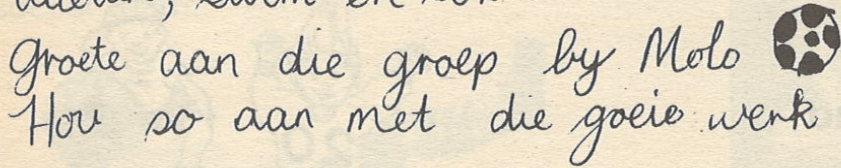 swem en
Groete aan die groep by Molo
Hou so aan met die goeie werk